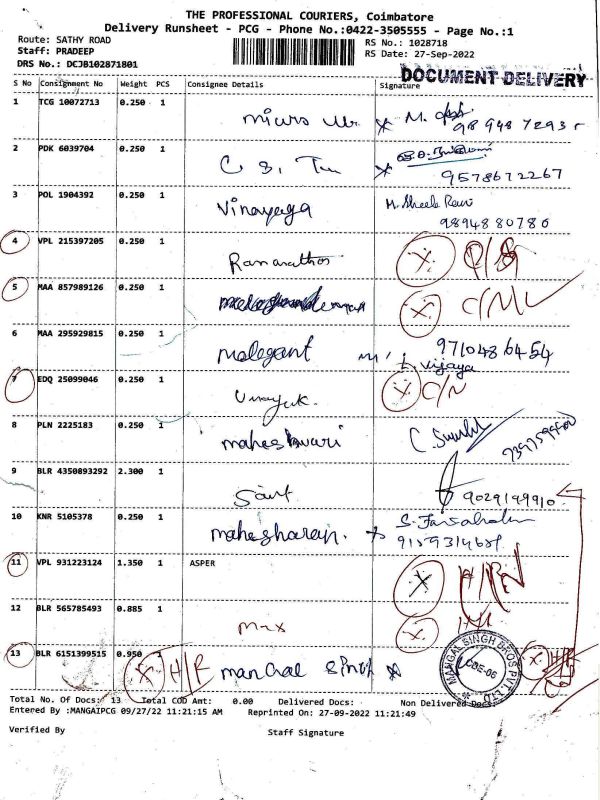 THE PROFESSIONAL COURIERS, Coimbatore
Delivery Runsheet - PCG - Phone No.:0422-3505555 - Page No.:1
Route: SATHY ROAD
RS No.: 1028718
Staff: PRADEEP
RS Date: 27-Sep-2022
DRS No.: DCJB102871801
DOCUMENT DELIVERY
S No Consignment No Weight PCS Consignee Details Signature
1 TCG 10072713 0.250 1 M.
2 PDK 6039704 0.250 1 C S.
9578672267
3 POL 1904392 0.250 1 Vinayaga M. Sheela Rani
9894880786
4 VPL 215397205 0.250 1
5 MAA 857989126 0.250 1 C/N
6 MAA 295929815 0.250 1 malegant 9710486454
L. vijaya
7 EDQ 25099046 0.250 1 C/N
8 PLN 2225183 0.250 1 maheshwari
9 BLR 4350893292 2.300 1 Saint 9029199910
10 KNR 5105378 0.250 1
11 VPL 931223124 1.350 1 ASPER
12 BLR 565785493 0.885 1 max
13 BLR 6151399515 0.950 1 H/R mangal singh
MANGAL SINGH BROS PVT LTD
CBE-06
Total No. Of Docs: 13 Total COD Amt: 0.00 Delivered Docs: Non Delivered Docs:
Entered By :MANGAIPCG 09/27/22 11:21:15 AM Reprinted On: 27-09-2022 11:21:49
Verified By Staff Signature